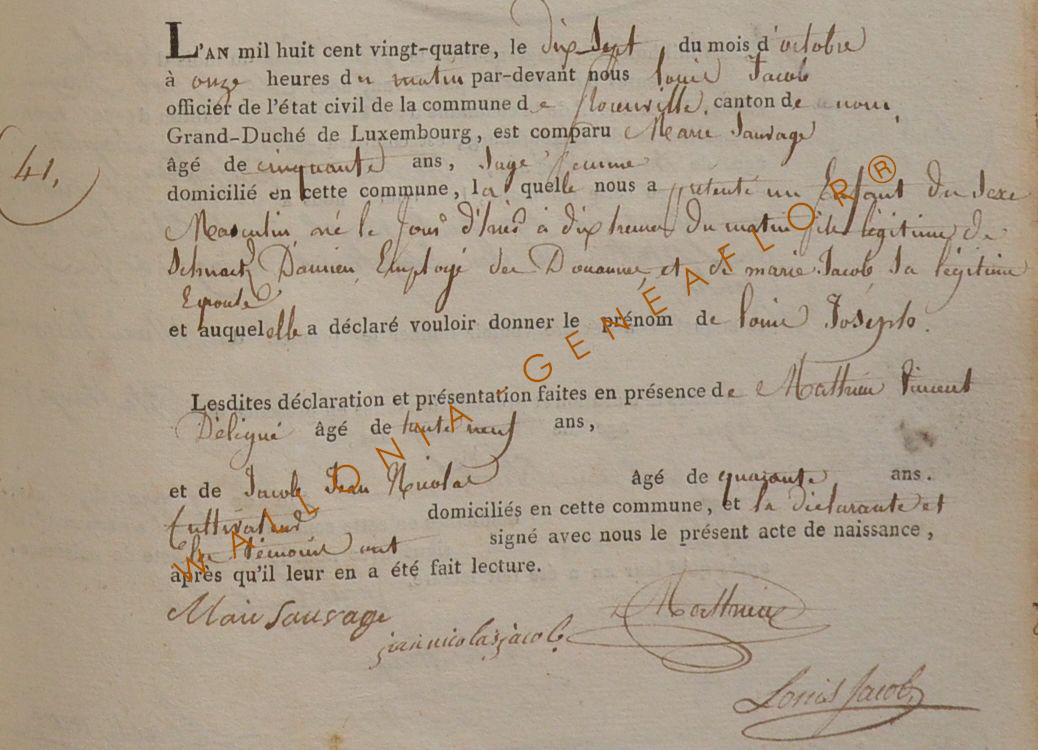 L'AN mil huit cent vingt-quatre, le dix Sept du mois d'octobre
à onze heures du matin par-devant nous louis Jacob
officier de l'état civil de la commune de florenville, canton de
Grand-Duché de Luxembourg, est comparu Marie Sauvage
âgé de cinquante ans, Sage femme
41,
domicilié en cette commune, la quelle nous a présenté un Enfant du Sexe
Masculin né le Jour d'hier à dix heures du matin fils légitime de
Damien Employé des Douannes et de marie Jacob Sa légitime
Epouse
et auquel elle a déclaré vouloir donner le prénom de louis Joseph.
Lesdites déclaration et présentation faites en présence de Mathieu Vincent
Déligné âgé de trente neuf ans,
et de Jacob Jean Nicolas âgé de quarante ans.
Cultivateur domiciliés en cette commune, et la déclarante et
les témoins ont signé avec nous le présent acte de naissance,
après qu'il leur en a été fait lecture.
Marie Sauvage
jean nicolas jacob
Mathieu
Louis Jacob
WALLONIA - GENÉAFLOR®